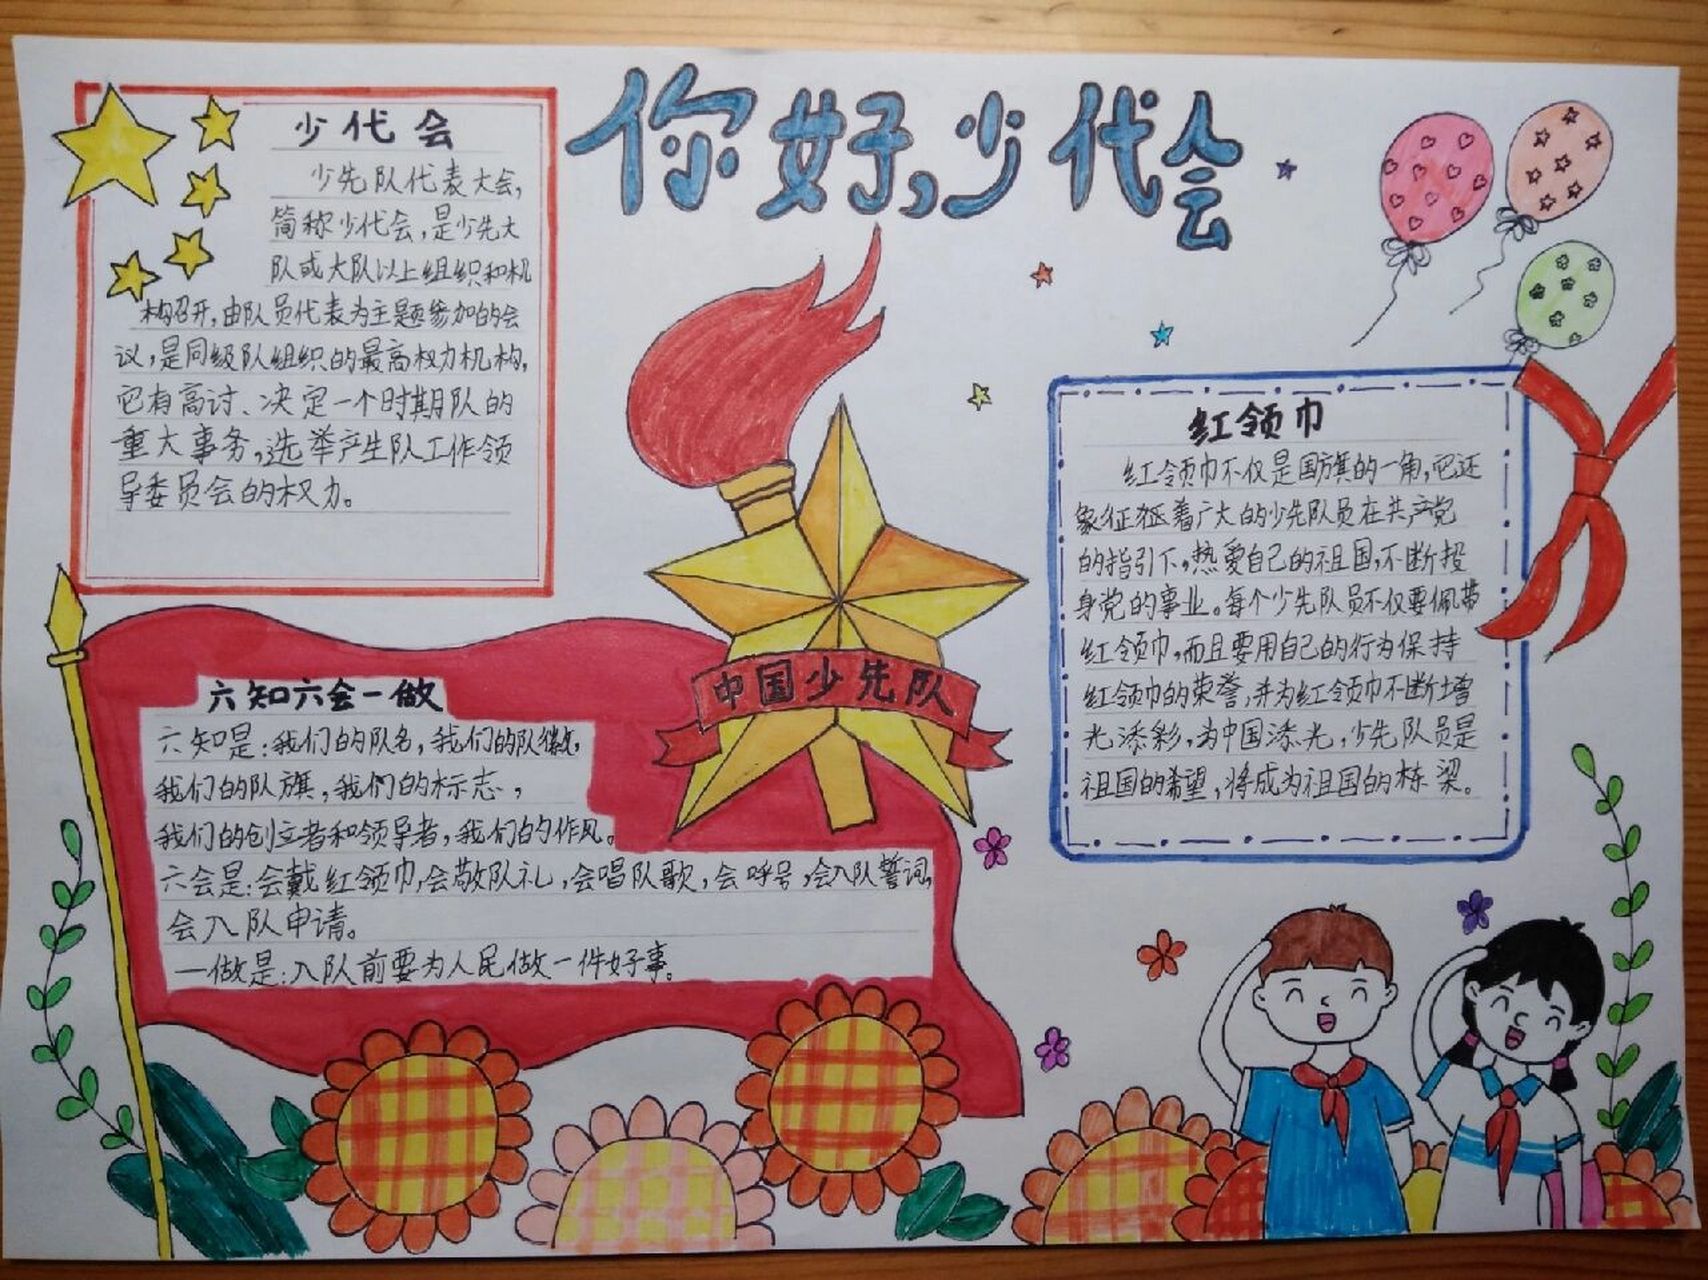 你好,少代会
少代会
少先队代表大会,
简称少代会,是少先大
队或大队以上组织和机
构召开,由队员代表为主题参加的会
议,是同级队组织的最高权力机构,
它有高讨、决定一个时期队的
重大事务,选举产生队工作领
导委员会的权力。
中国少先队
红领巾
红领巾不仅是国旗的一角,它还
象征征着广大的少先队员在共产党
的指引下,热爱自己的祖国,不断投
身党的事业。每个少先队员不仅要佩带
红领巾,而且要用自己的行为保持
红领巾的荣誉,并为红领巾不断增
光添彩,为中国添光,少先队员是
祖国的希望,将成为祖国的栋梁。
六知六会一做
六知是:我们的队名,我们的队徽,
我们的队旗,我们的标志,
我们的创立者和领导者,我们的作风。
六会是:会戴红领巾,会敬队礼,会唱队歌,会呼号,会入队誓词,
会入队申请。
一做是:入队前要为人民做一件好事。